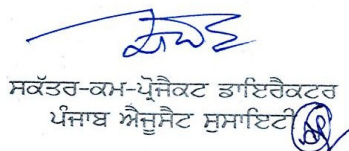 ਸਕੱਤਰ-ਕਮ-ਪ੍ਰੋਜੈਕਟ ਡਾਇਰੈਕਟਰ
ਪੰਜਾਬ ਐਜੂਸੈਟ ਸੁਸਾਇਟੀ